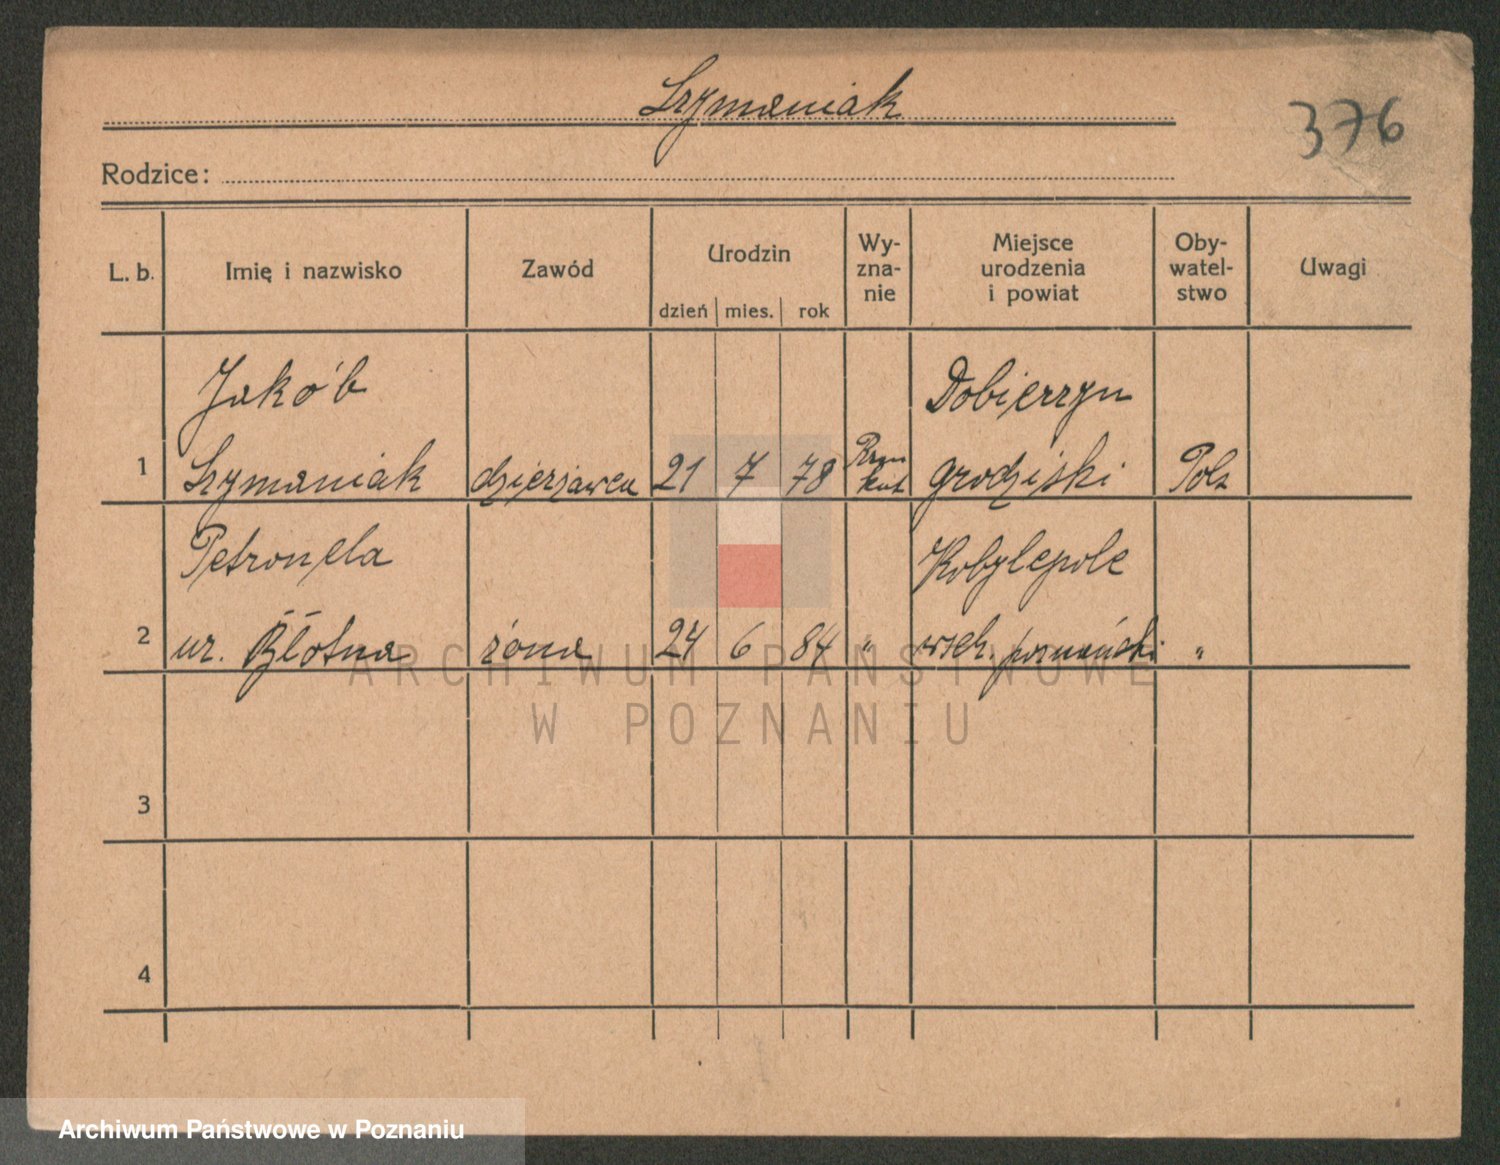 Szymaniak
376
Rodzice:
L. b. Imię i nazwisko Zawód Urodzin dzień mies. rok Wy-zna-nie Miejsce urodzenia i powiat Oby-watel-stwo Uwagi
Jakób Dobierzyn
1 Szymaniak dzierżawca 21 7 78 Rzm kat grodziski Pols
Petronela Kobylepole
2 ur. Błotna żona 24 6 84 " wsch. poznański "
3
4
ARCHIWUM PAŃSTWOWE
W POZNANIU
Archiwum Państwowe w Poznaniu